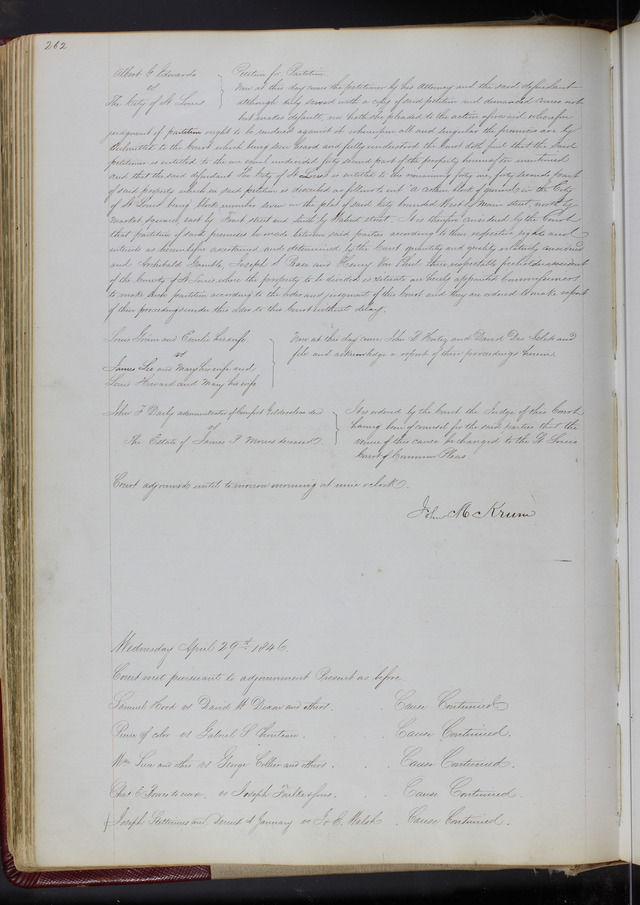 262
Albert G Edwards
vs
The City of St Louis
Petition for Partition.
Now at this day came the petitioner by his Attorney and the said defendant
although duly served with a copy of said petition and demanded comes not
but makes default, nor hath she pleaded to the action aforesaid wherefore
judgment of partition ought to be rendered against it whereupon all and singular the premises are by
submitted to the Court which being seen heard and fully understood the Court doth find that the said
petitioner is entitled to the one equal undivided forty second part of the property hereinafter mentioned
and that the said defendant The City of St Louis is entitled to the remaining forty one forty seconds parts
of said property which in said petition is described as follows to wit "a certain block of ground in the City
of St Louis being block number seven in the plat of said City bounded West by Main street, north by
Market Square, east by Front street and South by Walnut street. It is therefore considered by the Court
that partition of said premises be made between said parties according to their respective rights and
interests as hereinbefore ascertained and determined by the Court quantity and quality relatively considered
and Archibald Gamble, Joseph S Pease and Henry Von Phul three respectable freeholders residents
of the County of St Louis where the property to be divided is situate are hereby appointed Commissioners
to make such partition according to the order and judgment of this Court and they are ordered to make report
of their proceedings under this order to this Court without delay.
Louis Guion and Emilie his wife
vs
James Lee and Mary his wife and
Louis Howard and Mary his wife
Now at this day came John B and David
file and acknowledge a report of their proceedings herein.
John F Darby administrator of
vs
The Estate of James P Morris deceased
It is ordered by the Court the Judge of this Court
having been of counsel for the said parties that the
venue of this cause be changed to the St Louis
Court of Common Pleas
Court adjourned until to morrow morning at nine o'clock.
John M Krum
Wednesday April 29th 1846.
Court met pursuant to adjournment Present as before
Samuel Hood vs David H Dixon and others. Cause Continued
Pierre of color vs Gabriel S Chouteau. Cause Continued.
Wm and others vs George Collier and others. Cause Continued.
Chs E vs Joseph Cause Continued.
Joseph and Derrick A January vs J. C. Walsh. Cause Continued.